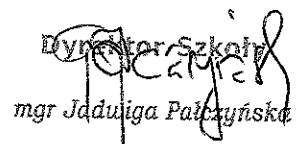 Dyrektor Szkoły
mgr Jadwiga Pałczyńska